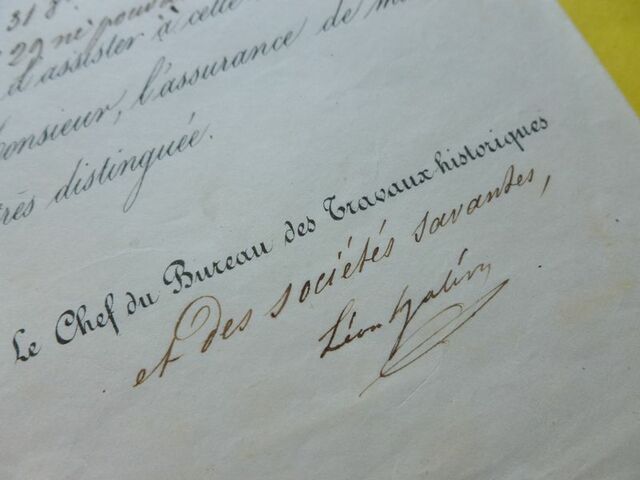 31 8
29 ne pouva
d'assister à cette
Monsieur, l'assurance de m
très distinguée.
Le Chef du Bureau des Travaux historiques
et des sociétés savantes,
Léon Halévy